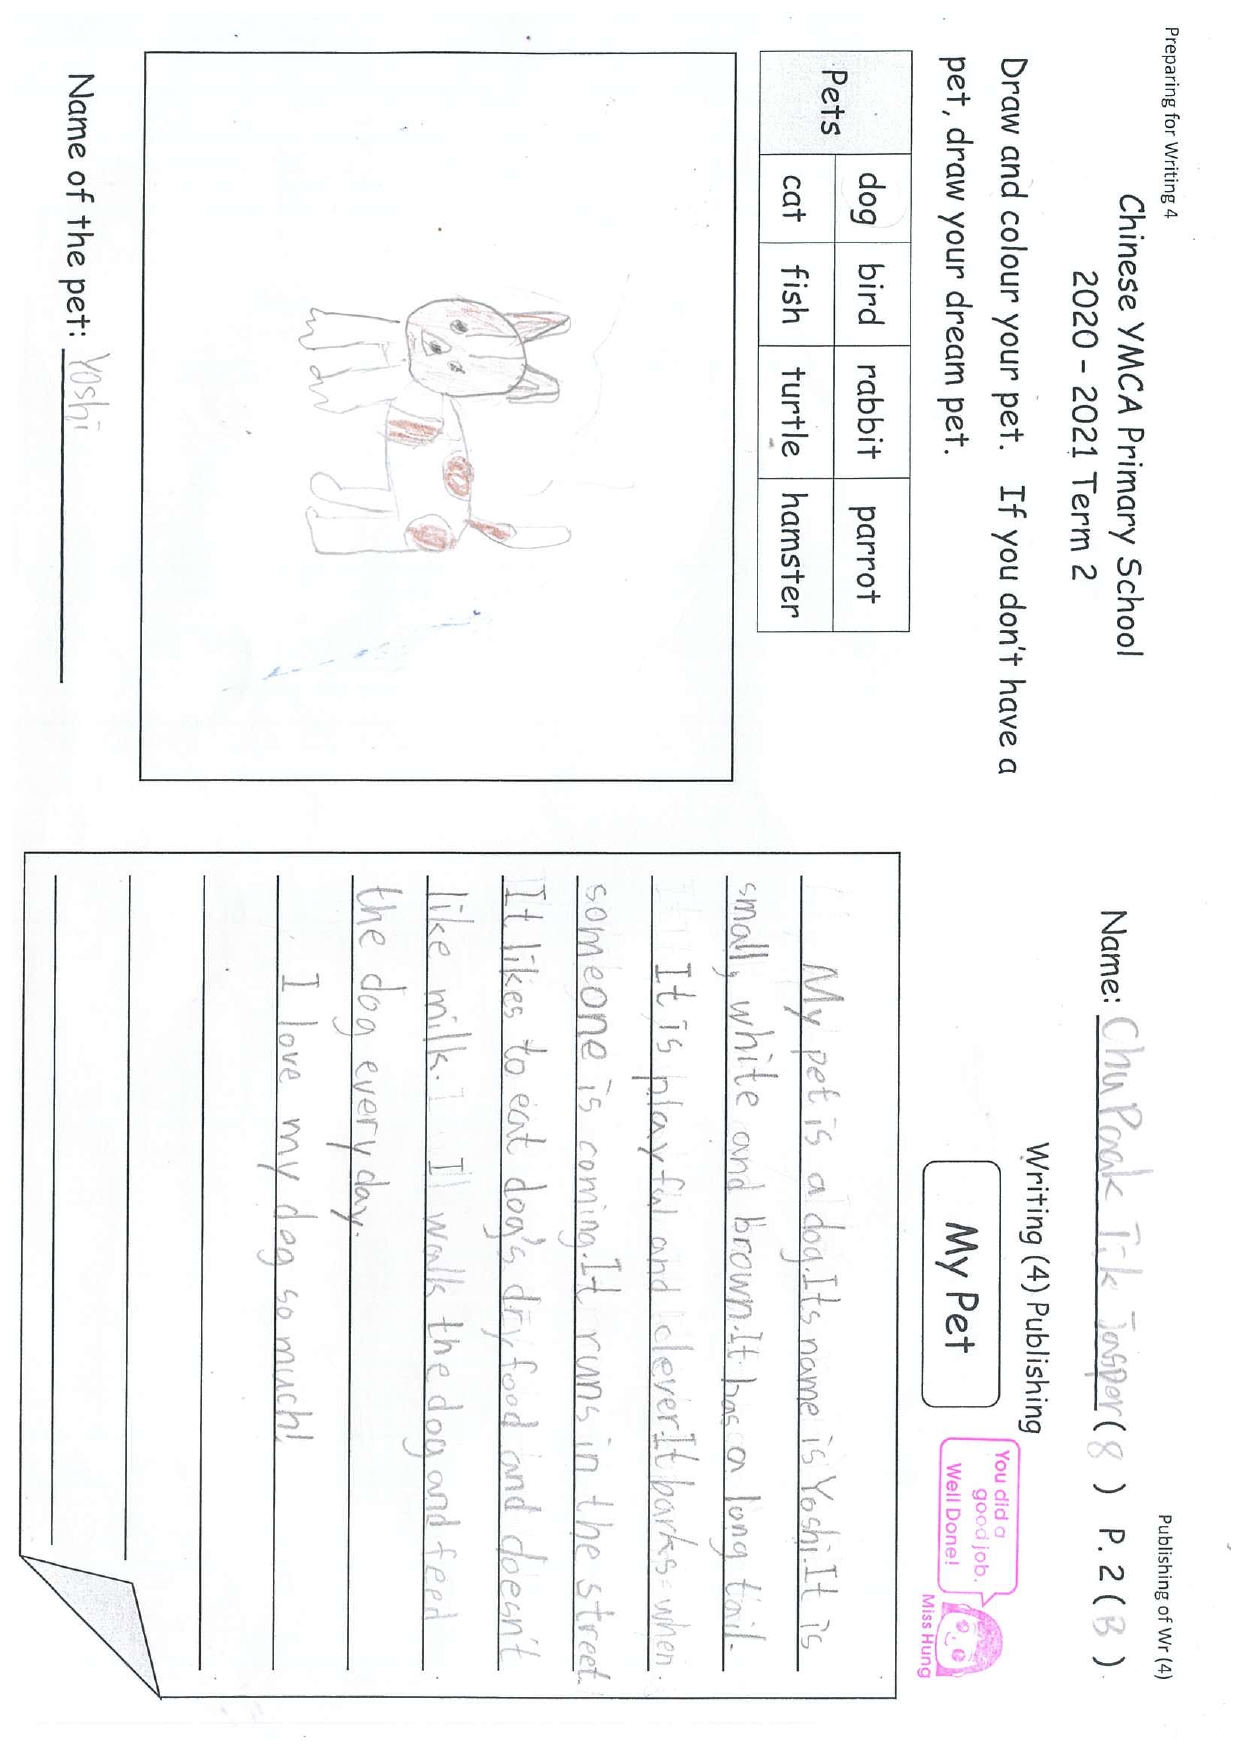 Preparing for Writing 4
Chinese YMCA Primary School
2020 - 2021 Term 2
Draw and colour your pet. If you don't have a
pet, draw your dream pet.
Pets
dog bird rabbit parrot
cat fish turtle hamster
Name of the pet: Yoshi
Publishing of Wr (4)
Name: Chu Paak Tik Jasper ( 8 ) P. 2 ( B )
Writing (4) Publishing
My Pet
You did a
good job.
Well Done!
Miss Hung
My pet is a dog. Its name is Yoshi. It is
small, white and brown. It has a long tail.
It is playful and clever. It barks when
someone is coming. It runs in the street.
It likes to eat dog's dry food and doesn't
like milk. I walk the dog and feed
the dog every day.
I love my dog so much!